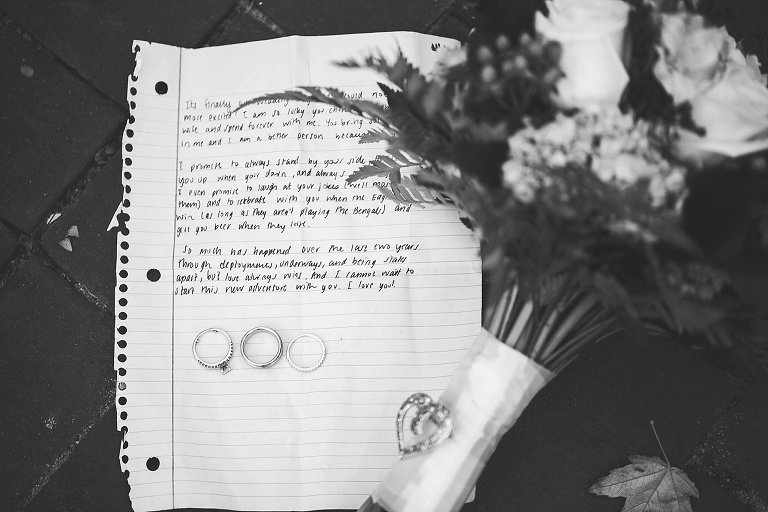 Its finally our wedding day! I could not
more excited! I am so lucky you chose
wife and spend forever with me. You bring
in me and I am a better person because
I promise to always stand by your side
you up when your down, and always
I even promise to laugh at your jokes (well most
them) and to celebrate with you when the Eag
win (as long as they aren't playing the Bengals) and
get you beer when they lose.
So much has happened over the last two years
through deployments, underways, and being states
apart, but love always wins. And I cannot wait to
start this new adventure with you. I love you!